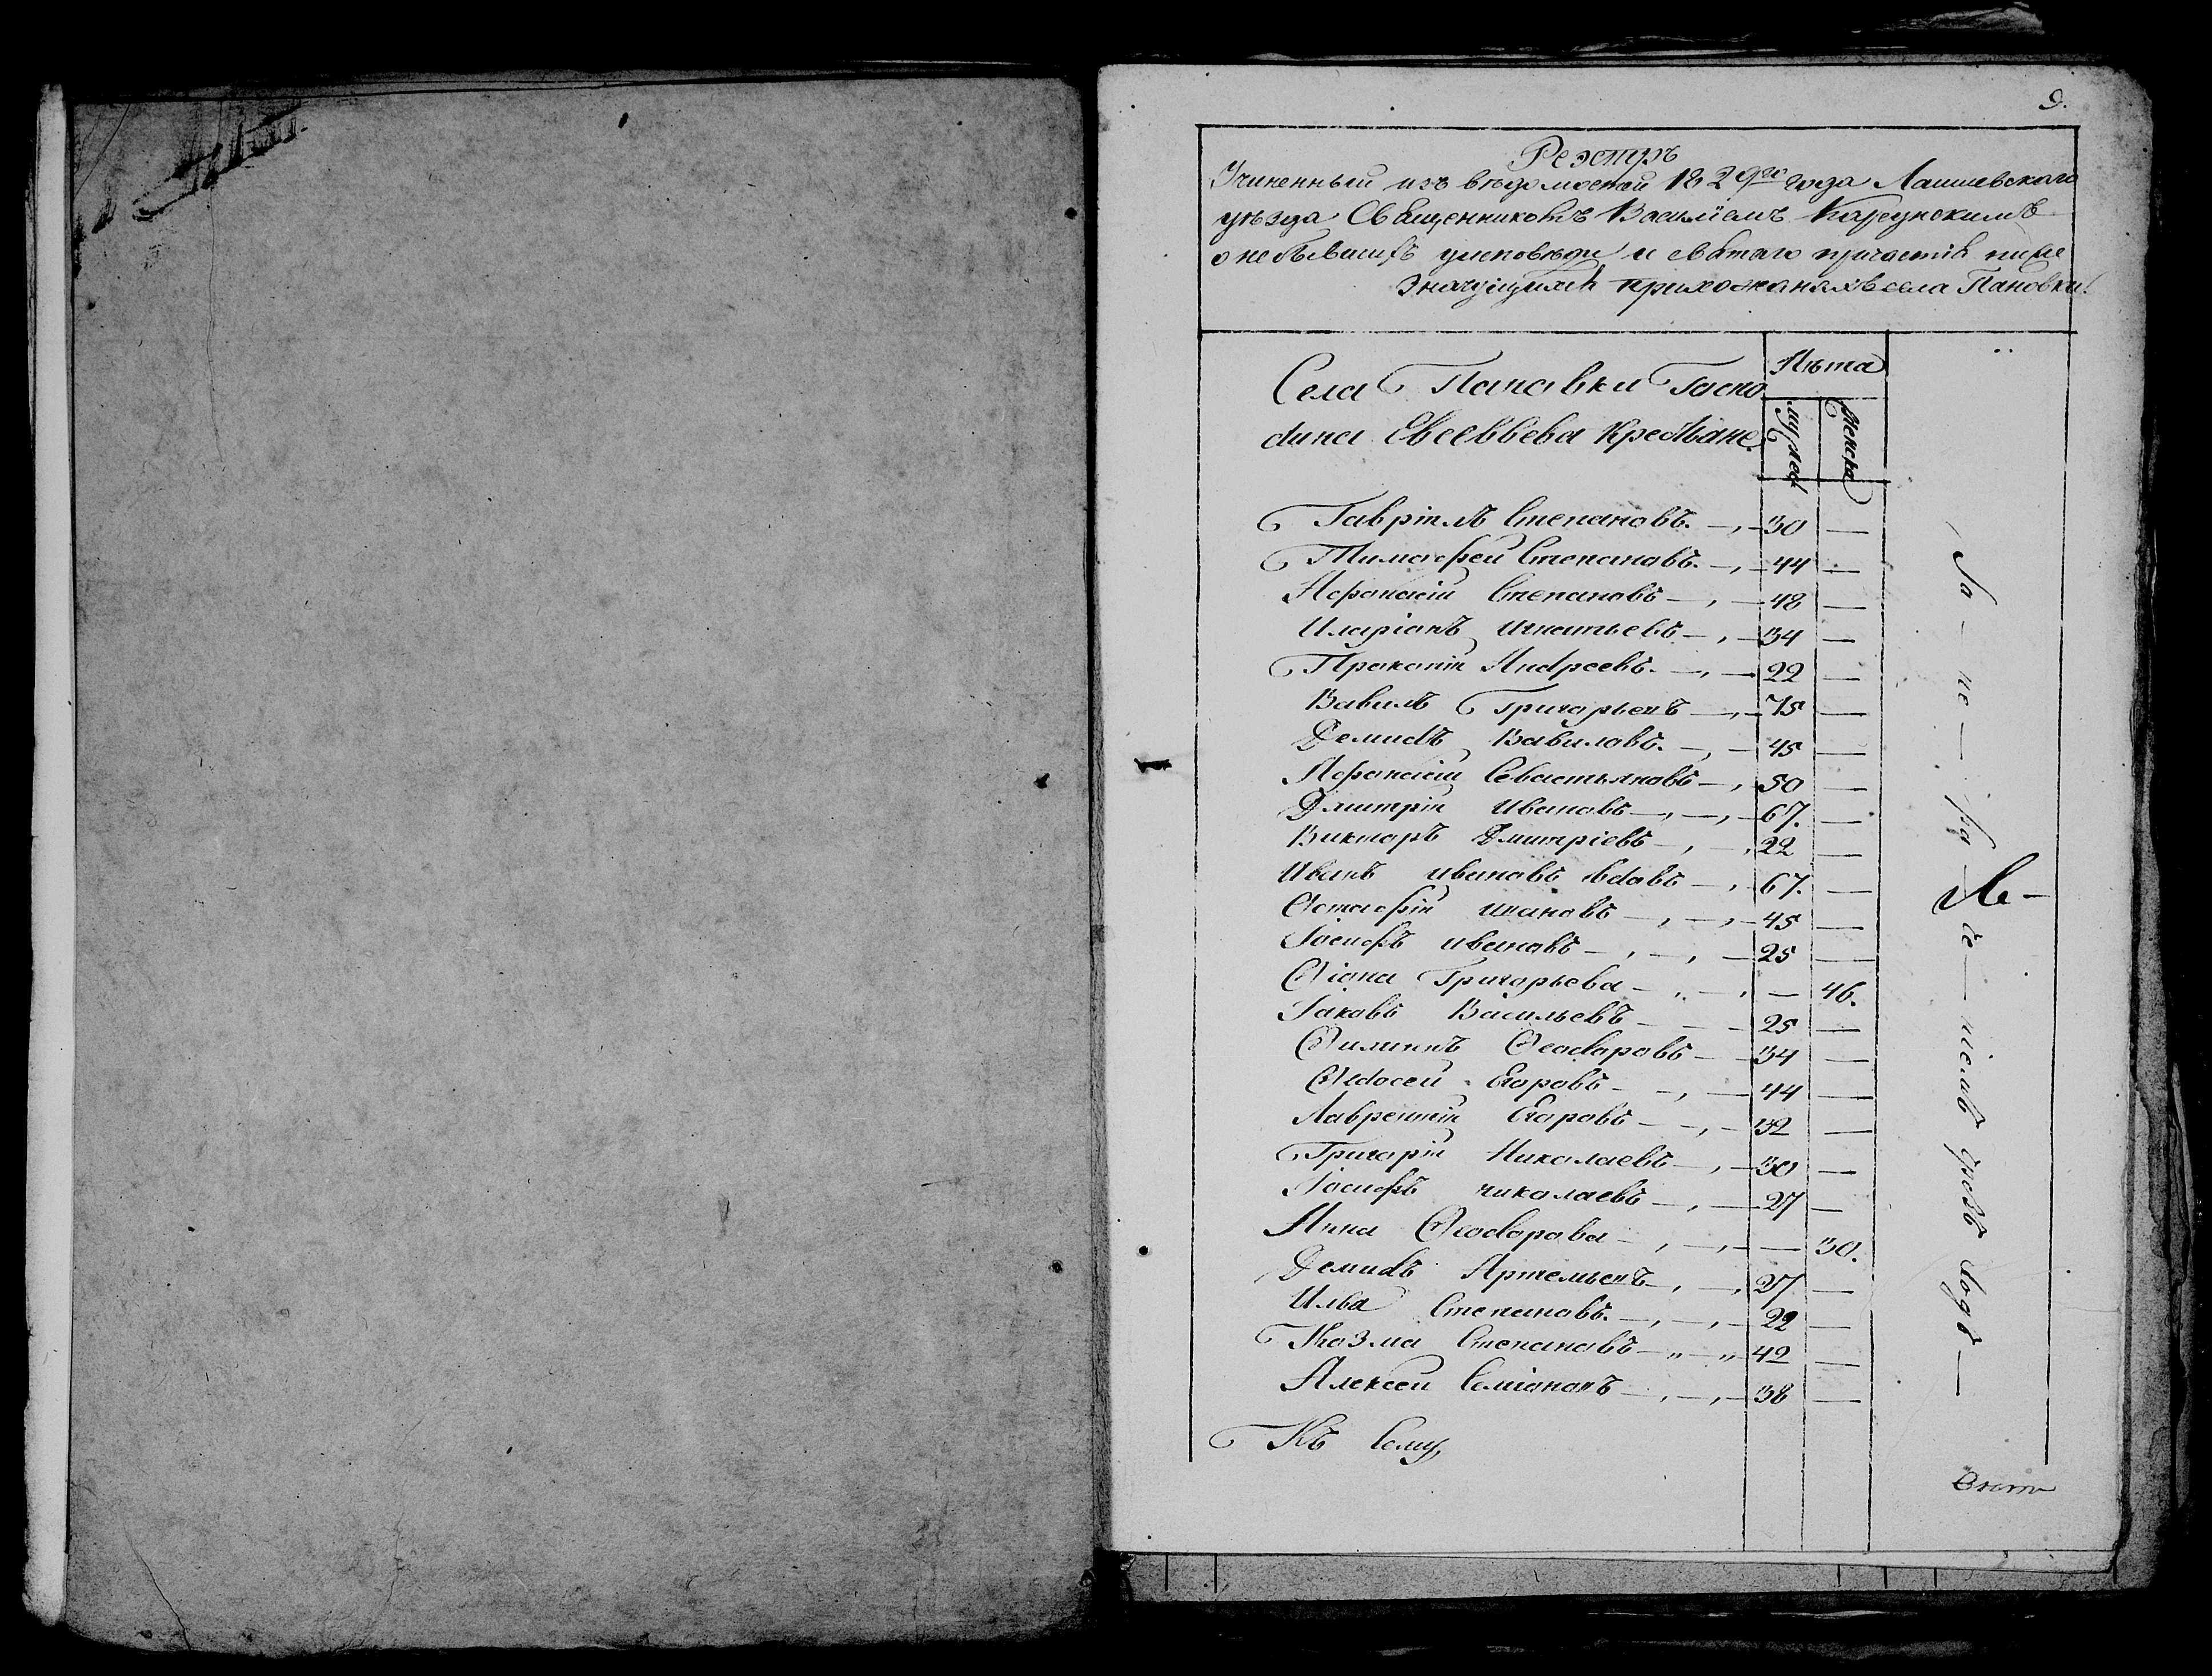 9.
Реэстръ
Учиненный изъ вѣдомостей 1829го года Лаишевскаго
уѣзда Священникомъ Василіемъ
о небывшихъ уисповѣди и святаго причастія ниже
значущихся прихожанахъ села Пановки.
Села Пановки Госпо
дина Евсевьева Крестьяне.
Лѣта
мужес
женска
Гавріилъ Степановъ. 30 —
Тимофей Степановъ. 44 —
Афонасій Степановъ 48 —
Иларіонъ Игнатьевъ 34 —
Прокопій Андреевъ. 22 —
Вавилъ Григорьевъ 75 —
Демидъ Вавиловъ. 45 —
Афонасій Севастьяновъ 50 —
Дмитрій Ивановъ 67. —
Викторъ Дмитріевъ 22 —
Иванъ ивановъ вдовъ 67. —
Остафій ивановъ 45 —
Іосифъ ивановъ 25 —
Григорьева — 46.
Іаковъ Васильевъ 25 —
Филиппъ Феодоровъ 34 —
Федосей Егоровъ 44 —
Лаврентій Егоровъ 32 —
Григорій Николаевъ 30 —
Іосифъ николаевъ 27 —
Анна Феодорова — 30.
Демидъ Артемьевъ 27 —
Илья Степановъ. 22 —
Козма Степановъ 42 —
Алексей Семіоновъ 38 —
Къ Сему
За — не — ра — де — ніемъ